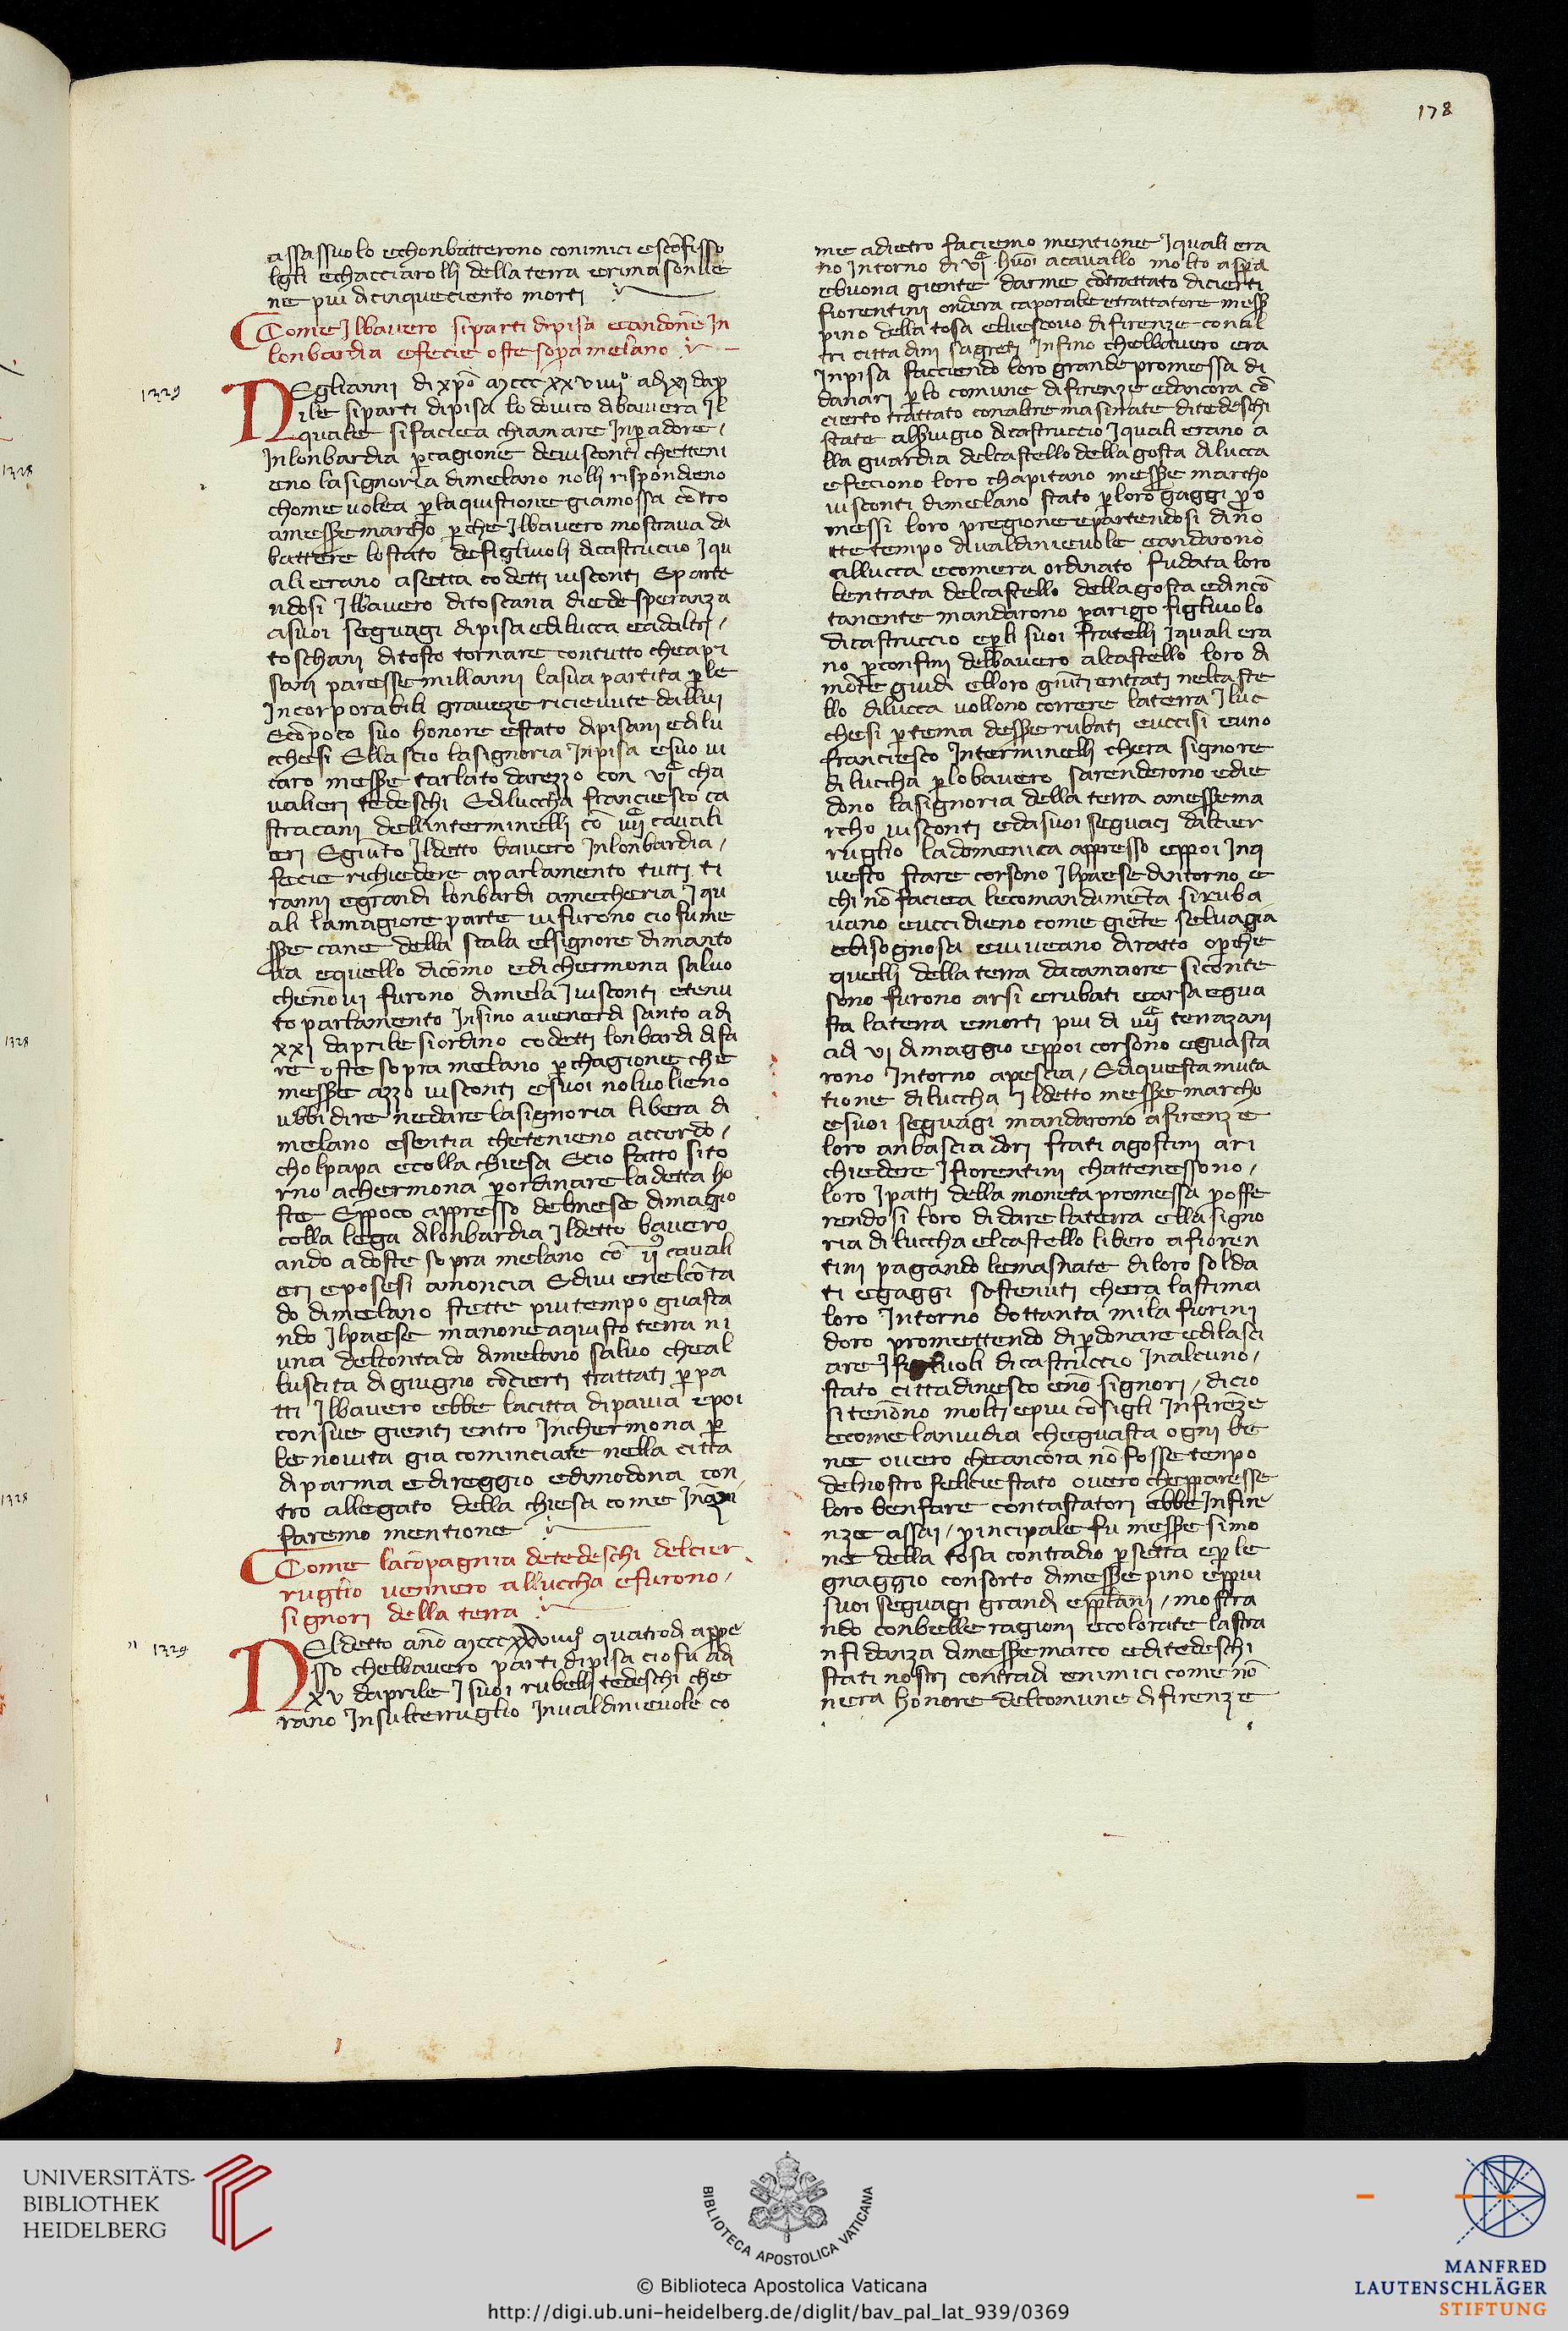 178
assassuolo echonbatterono conimici escōfisso
lgli echacciarolli della terra erimasonue
ne piu dicinqueciento morti
Come Ilbauero siparti dipisa eandonē In
lonbardia efecie oste sopͣ melano
1329
NEglianni dixpō mcccxxuiiij° adi xi dap̱
ile siparti dipisa lodouico dibauera Il
quale sifacieua chiamare Inp̱adore /
Inlonbardia p̱cagione deuisconti chetteni
eno lasignoria dimelano nolli rispondieno
chome uolea p̱laquistione giamossa cōtro
amesse marcho p̱che Ilbauero mostraua da
battere lostato defigliuoli dicastruccio Iqu
ali erano asetta codetti uisconti Eparte
ndosi Ilbauero ditoscana diede speranza
asuoi seguagi dipisa edilucca eadaltri /
toschani ditosto tornare contutto cheapi
sani paresse millanni lasua partita p̱le
Incorporabili graueze riceuute dallui
Ecōpoco suo honore estato dipisani edilu
cchesi Ellascio lasignoria Inpisa esuo ui
caro messe tarlato darezzo con uiͨ cha
ualieri tedeschi Ediluccha franciesco ca
stracani dellinterminelli cō iiijͨ cauali
eri Egiūto Ildetto bauero Inlonbardia /
fecie richiedere aparlamento tutti ti
ranni egrandi lonbardi amecheria Iqu
ali lamagiore parte uifurono cio fu me
sse cane della scala elsignore dimanto
ua equello dicōmo edi chermona saluo
chenōui furono dimela Iuisconti etenu
to parlamento Insino auenerdi santo adi
xxi daprile siordino codetti lonbardi difa
re oste sopra melano p̱chagione che
messe azzo uisconti esuoi noluolieno
ubbidire nedare lasignoria libera di
melano esentia chetenieno accordo /
cholpapa ecolla chiesa Ecio fatto sito
rno achermona p̱ordinare ladetta ho
ste Eppoco appresso delmese dimagio
colla lega dilonbardia Ildetto bauero
ando adoste sopra melano cō ij cauali
eri eposesi amoncia Ediui enelcōta
do dimelano stette piu tempo guasta
ndo Ilpaese manoneaquisto terra ni
una delcontado dimelano saluo cheal
luscita di giugno cōcierti trattati p̱pa
tti Ilbauero ebbe lacitta dipauia epoi
consue gienti entro Inchermona p̱
lenouita gia cominciate nella citta
di parma edireggio edimodona con
tro allegato della chiesa come
faremo mentione
Come lacōpagnia detedeschi delcier
ruglio uennero alluccha efurono /
signori della terra
1329
NEldetto anō mcccxxuiiij° quatrodi appe
sso chelbauero parti dipisa ciofu adi
xu daprile Isuoi rubelli tedeschi che
rano Insulcerruglio Inualdinieuole co
me adietro faciemo mentione Iquali era
no Intorno di uiͨ huoī acauallo molto aspͣ
ebuona giente darme cōtrattato dicierti
fiorentini ondera caporale etrattatore mess
pino della tosa eluescouo difirenze conal
tri cittadini sagreti Infino chelbauero era
Inpisa facciendo loro grande promessa di
danari p̱lo comune difirenze edancora cō
cierto trattato conaltre masnate ditedeschi
state alseruigio dicastruccio Iquali erano a
lla guardia delcastello dellagosta dilucca
efeciono loro chapitano messe marcho
uisconti dimelano stato p̱loro gaggi p̱o
messi loro pregione epartendosi dino
tte tempo diualdinieuole eandarono
allucca ecomera ordinato fudata loro
lentrata delcastello dellagosta edincō
tanente mandarono p̱arigo figliuolo
dicastruccio ep̱li suoi fratelli Iquali era
no p̱confini delbauero alcastello loro di
mōte guidi elloro giūti entrati nelcaste
llo dilucca uollono correre laterra Iluc
chesi p̱tema desse rubati euccisi euno
franciesco Interminelli chera signore
di luccha p̱lobauero sarenderono edie
dono lasignoria della terra amessema
rcho uisconti edasuoi seguaci dalcier
ruglio ladomenica appresso eppoi Inq
uesto stare corsono Ilpaese dintorno e
chi nō facieua lecomandamēta siruba
uano euccidieno come giēte seluagia
ebisognosa euiueano diratto op̱che
quelli della terra dacamaiore siconte
sono furono arsi erubati earsa egua
sta laterra emorti piu di iiijͨ terrazani
adi ui dimaggio eppoi corsono eguasta
rono Intorno apescia / Ediquesta muta
tione diluccha Ildetto messe marcho
esuoi seguagi mandarono afirenze
loro anbasciadori frati agostini ari
chiedere Ifiorentini chattenessono /
loro Ipatti della moneta promessa p̱offe
rendosi loro didare laterra ella signo
ria di luccha elcastello libero afioren
tini pagando lemasnate diloro solda
ti egaggi sostenuti chera lastima
loro Intorno dottanta mila fiorini
doro promettendo dip̱donare edilasci
are I dicastruccio Inalcuno /
stato cittadinesco enō signori / dicio
sitenōno molti epiu cōsigli Infirenze
ecome lanuidia cheguasta ogni be
ne ouero cheancora nō fosse tenpo
delnostro felicie stato ouero chepparesse
loro benfare contastatori ebbe Infire
nze assai / principale fu messe simo
ne della tosa contradio p̱setta ep̱le
gnaggio consorto dimesse pino eppiu
suoi seguagi grandi eppolani / mostra
ndo conbelle ragioni ecolorate lastra
nfidanza dimesse marco editedeschi
stati nostri contradi enimici come nō
nera honore delcomune difirenze
1328
1328
1328
UNIVERSITÄTS-
BIBLIOTHEK
HEIDELBERG
BIBLIOTECA APOSTOLICA VATICANA
© Biblioteca Apostolica Vaticana
http://digi.ub.uni-heidelberg.de/diglit/bav_pal_lat_939/0369
MANFRED
LAUTENSCHLÄGER
STIFTUNG